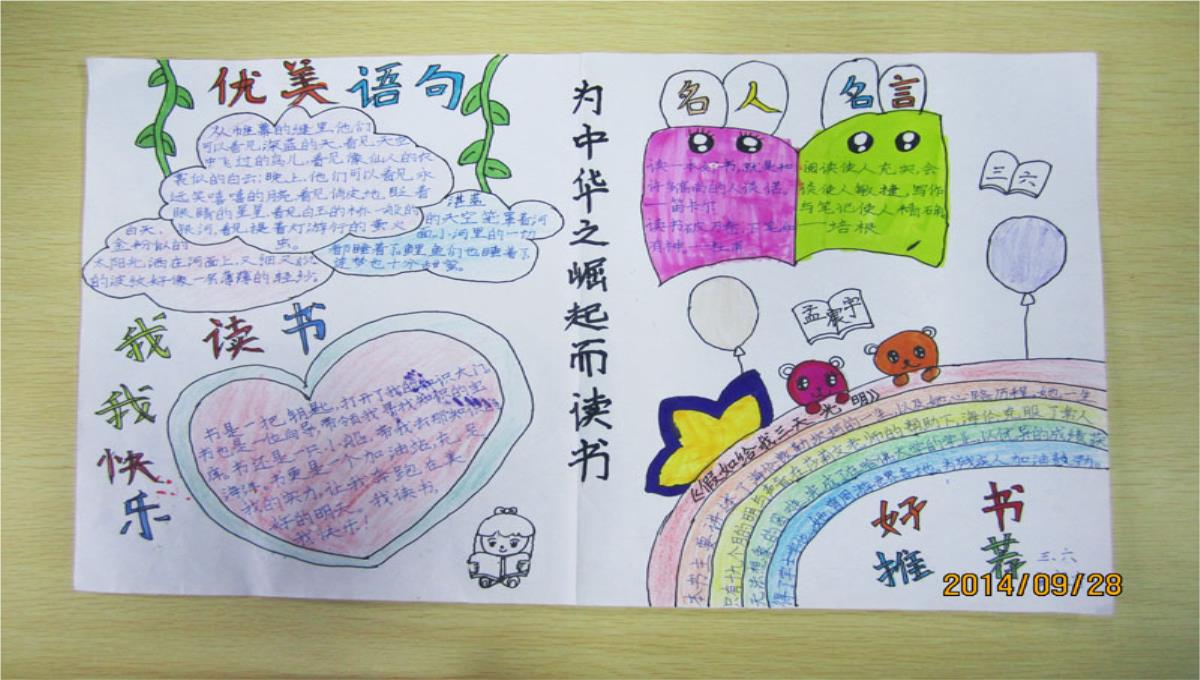 优美语句
从帷幕的缝里，他们
可以看见深蓝的天，看见天空
中飞过的鸟儿，看见像仙人的衣
裳似的白云；晚上，他们可以看见永
远笑嘻嘻的月亮，看见俏皮地眨着
眼睛的星星，看见白玉的桥一般的
银河，看见提着灯游行的萤火
虫。
白天，
金粉似的
太阳光洒在河面上，又细又
的波纹好像一层薄薄的轻纱。
湛蓝
的天空笼罩着河
面，小河里的一切
都睡着了，鲤鱼们也睡着了，
连梦也十分甜蜜。
我读书
我
快
乐
书是一把钥匙，打开了我的知识大门，
书也是一位向导，带领我寻找知识的宝
库，书还是一只小船，带我去那知识的
海洋，书更是一个加油站，充足
我的实力，让我奔跑在美
好的明天。我读书，
我快乐！
为中华之崛起而读书
名人名言
读一本好书，就是和
许多高尚的人谈话。
——笛卡尔
读书破万卷，下笔如
有神。——杜甫
阅读使人充实，会
谈使人敏捷，写作
与笔记使人精确。
——培根
三六
孟寰宇
《假如给我三天光明》
本书主要讲述了海伦感动然的一生，以及她心路历程，她一生
只有十九个月的光明与声音，在莎莉文老师的帮助下，海伦克服了常人
无法想象的困难，完成了在哈佛大学的学业，以优异的成绩获
得了学士学位，她曾周游世界各地，为残疾人加油鼓劲。
好书
推荐
三、六
2014/09/28